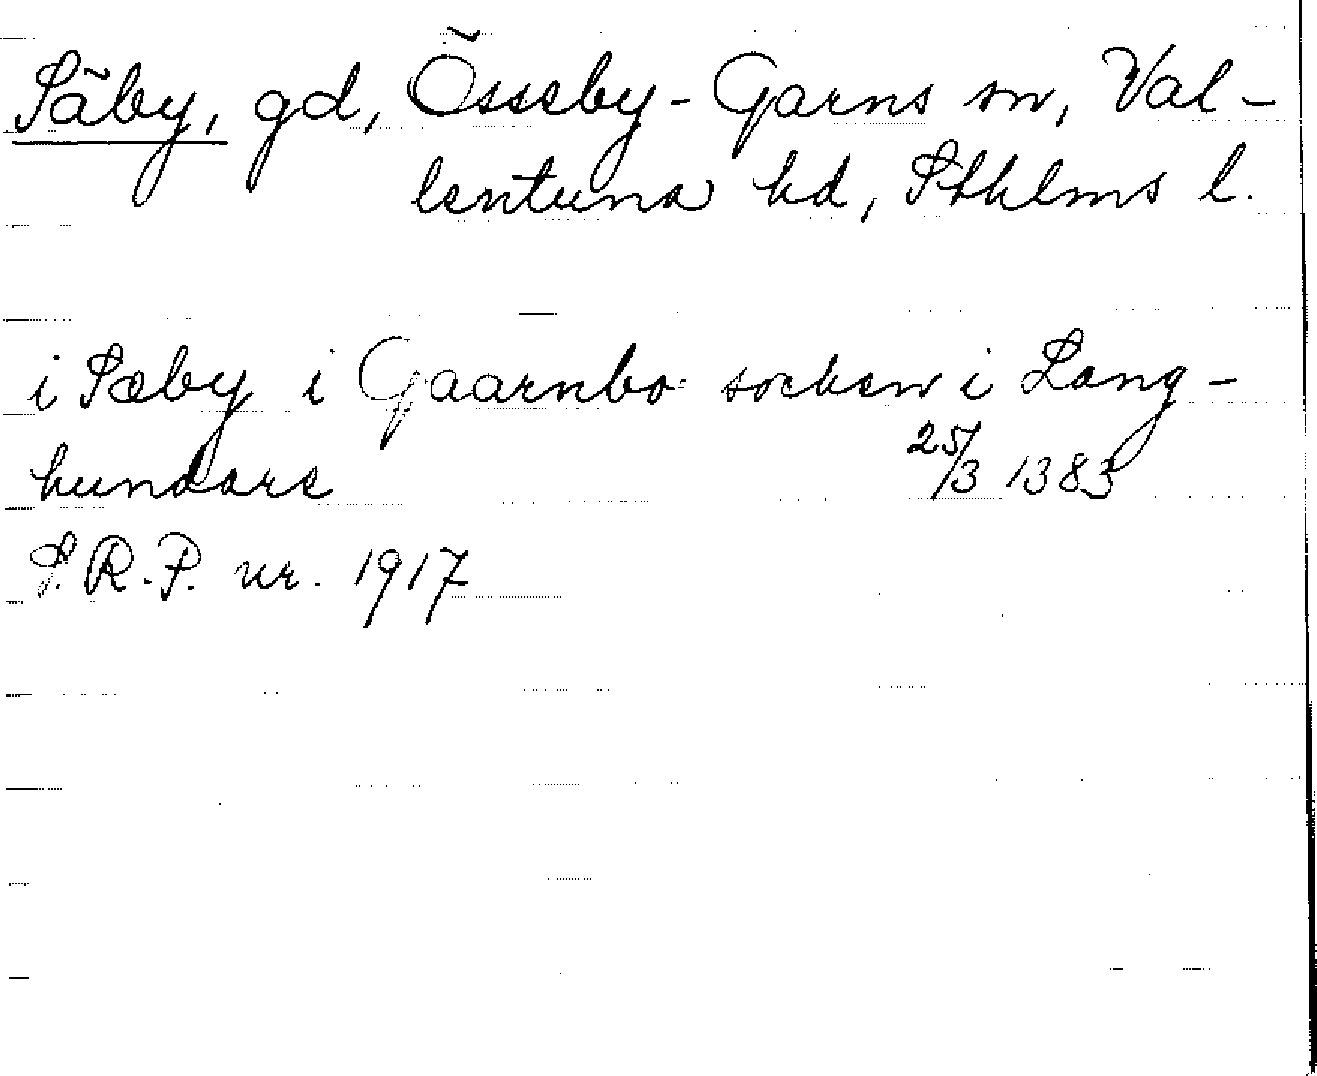 Säby, gd, Össeby-Garns sn, Val-
lentuna hd, Sthlms l.
i Sæby i Gaarnbo socken i Lang-
hundare 25/3 1383
S.R.P. nr. 1917